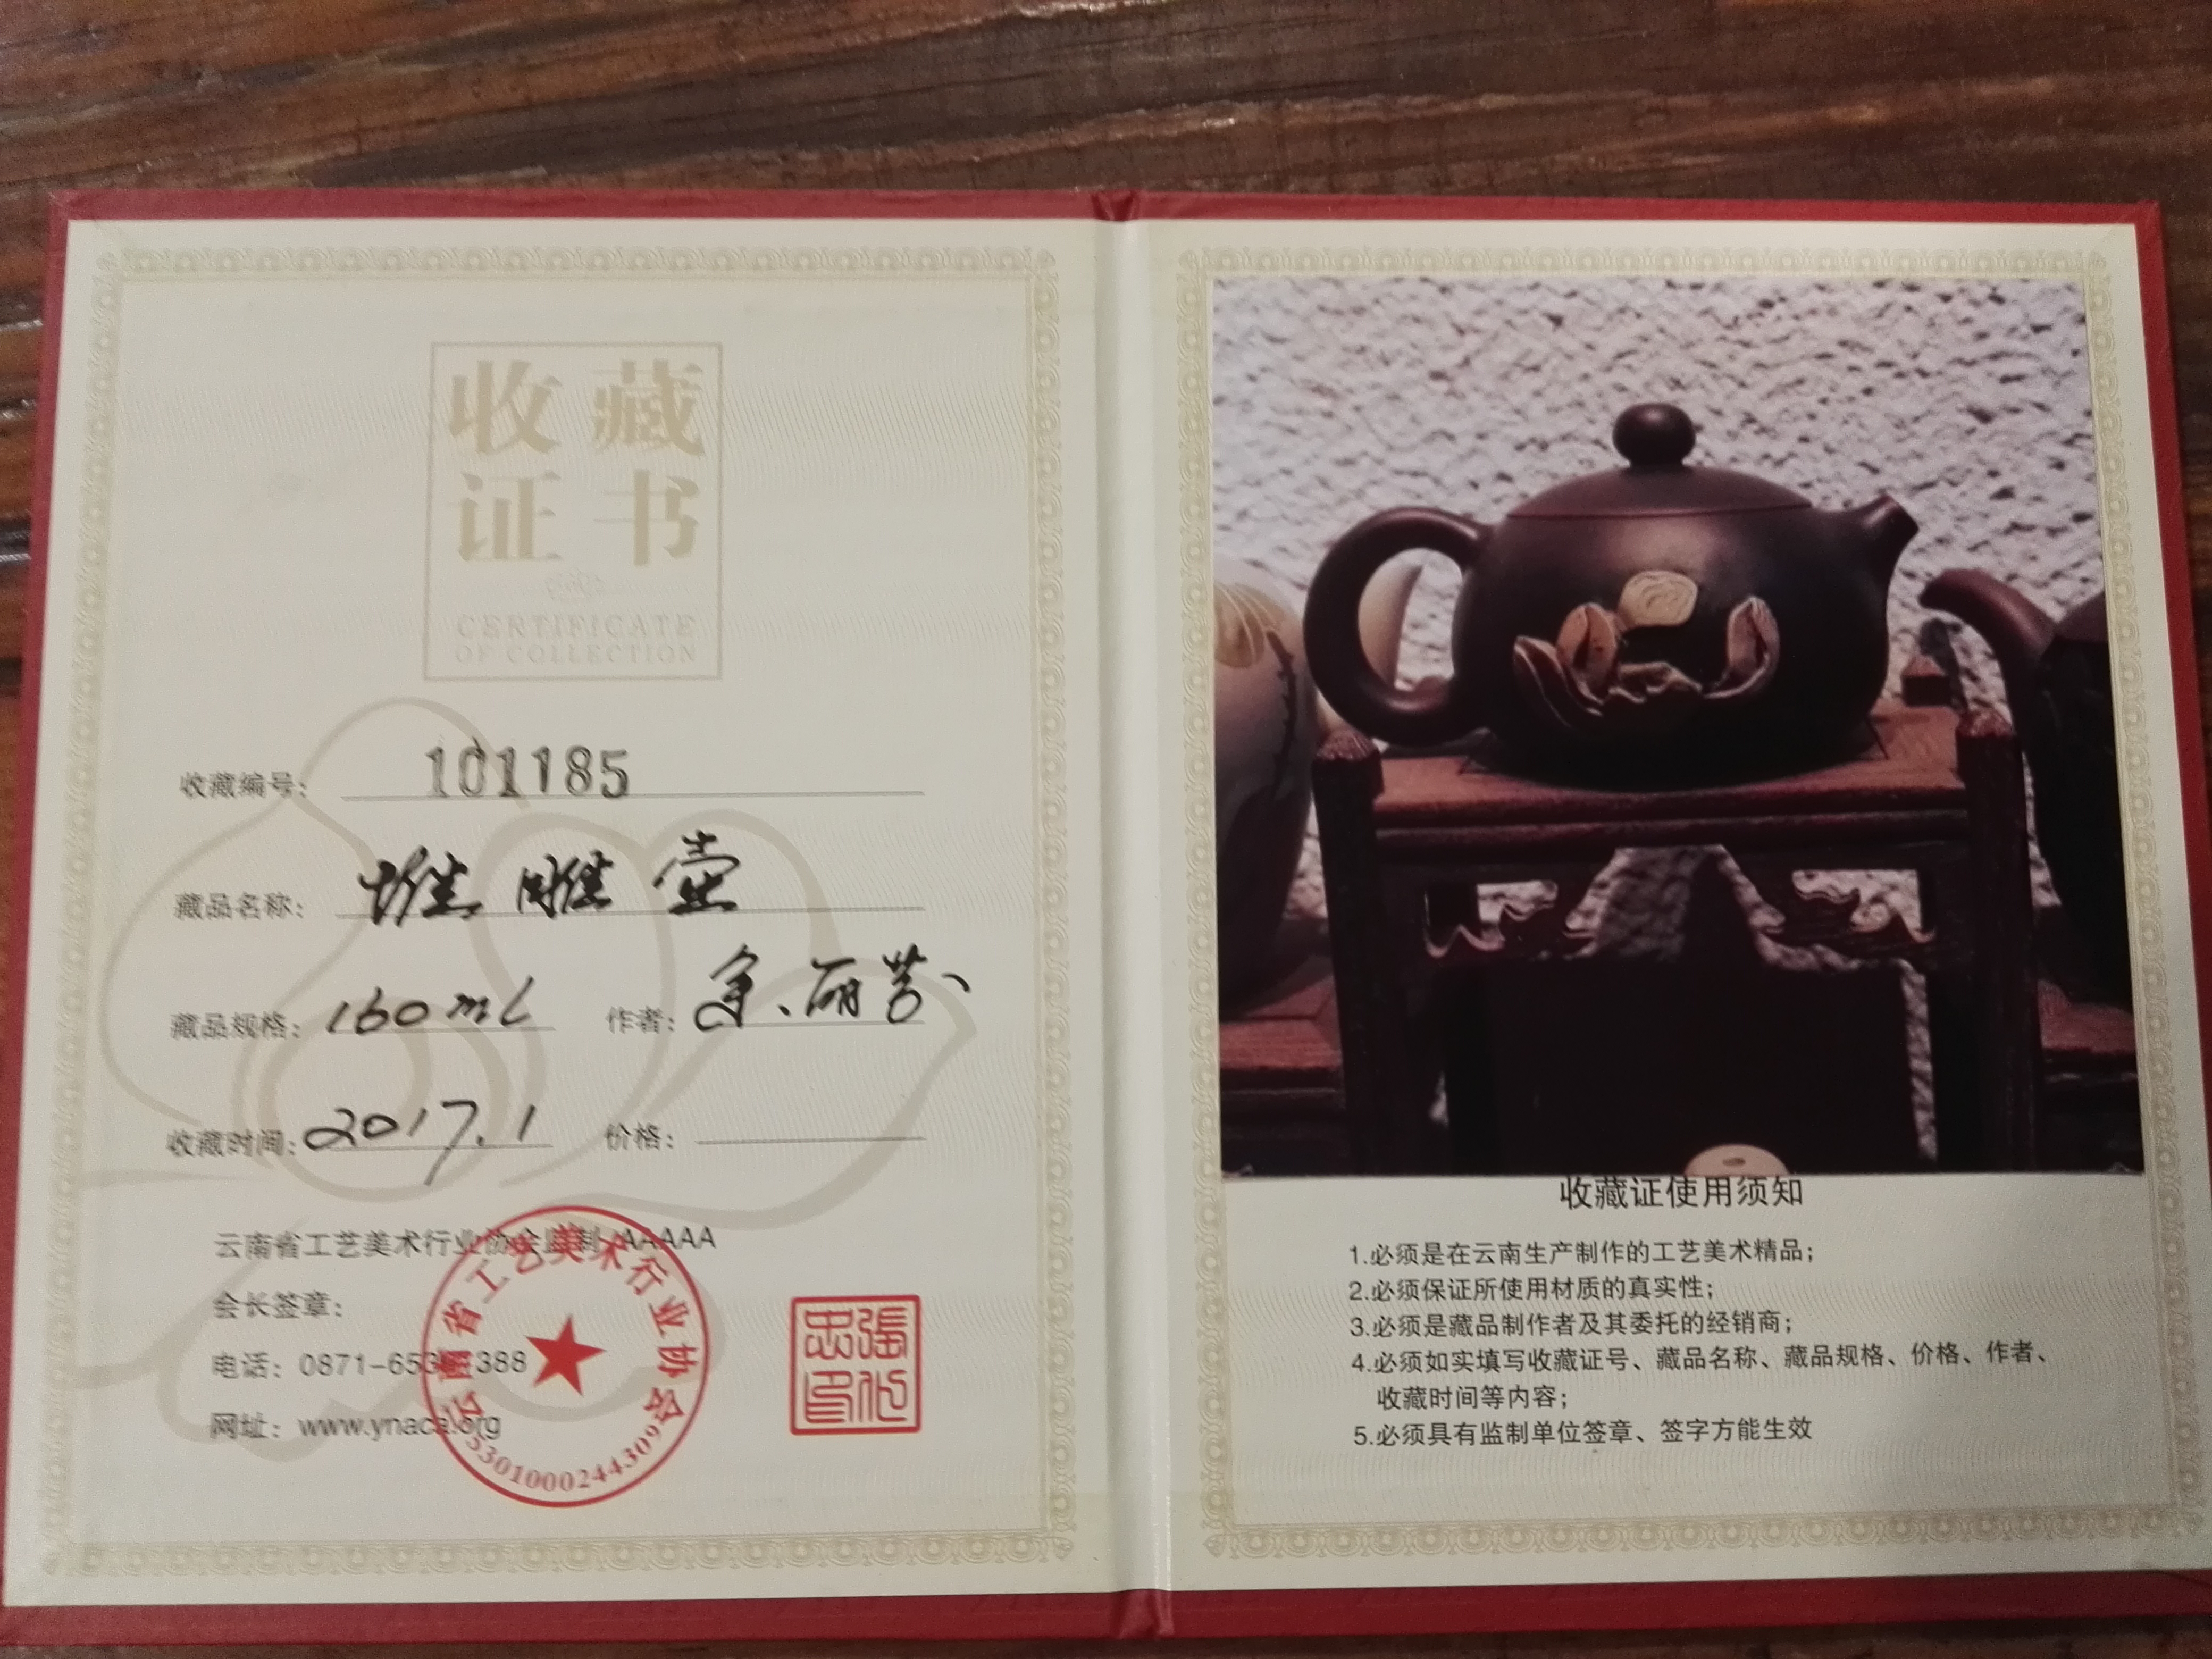 收藏
证书
CERTIFICATE
OF COLLECTION
收藏编号： 101185
藏品名称： 堆雕壶
藏品规格： 160ml 作者： 丽芬
收藏时间： 2017.1 价格：
云南省工艺美术行业协会监制 AAAAA
会长签章：
电话：0871-653 388
网址：www.ynaca.org
云南省工艺美术行业协会
5301000244309
張忠印
收藏证使用须知
1.必须是在云南生产制作的工艺美术精品；
2.必须保证所使用材质的真实性；
3.必须是藏品制作者及其委托的经销商；
4.必须如实填写收藏证号、藏品名称、藏品规格、价格、作者、
收藏时间等内容；
5.必须具有监制单位签章、签字方能生效